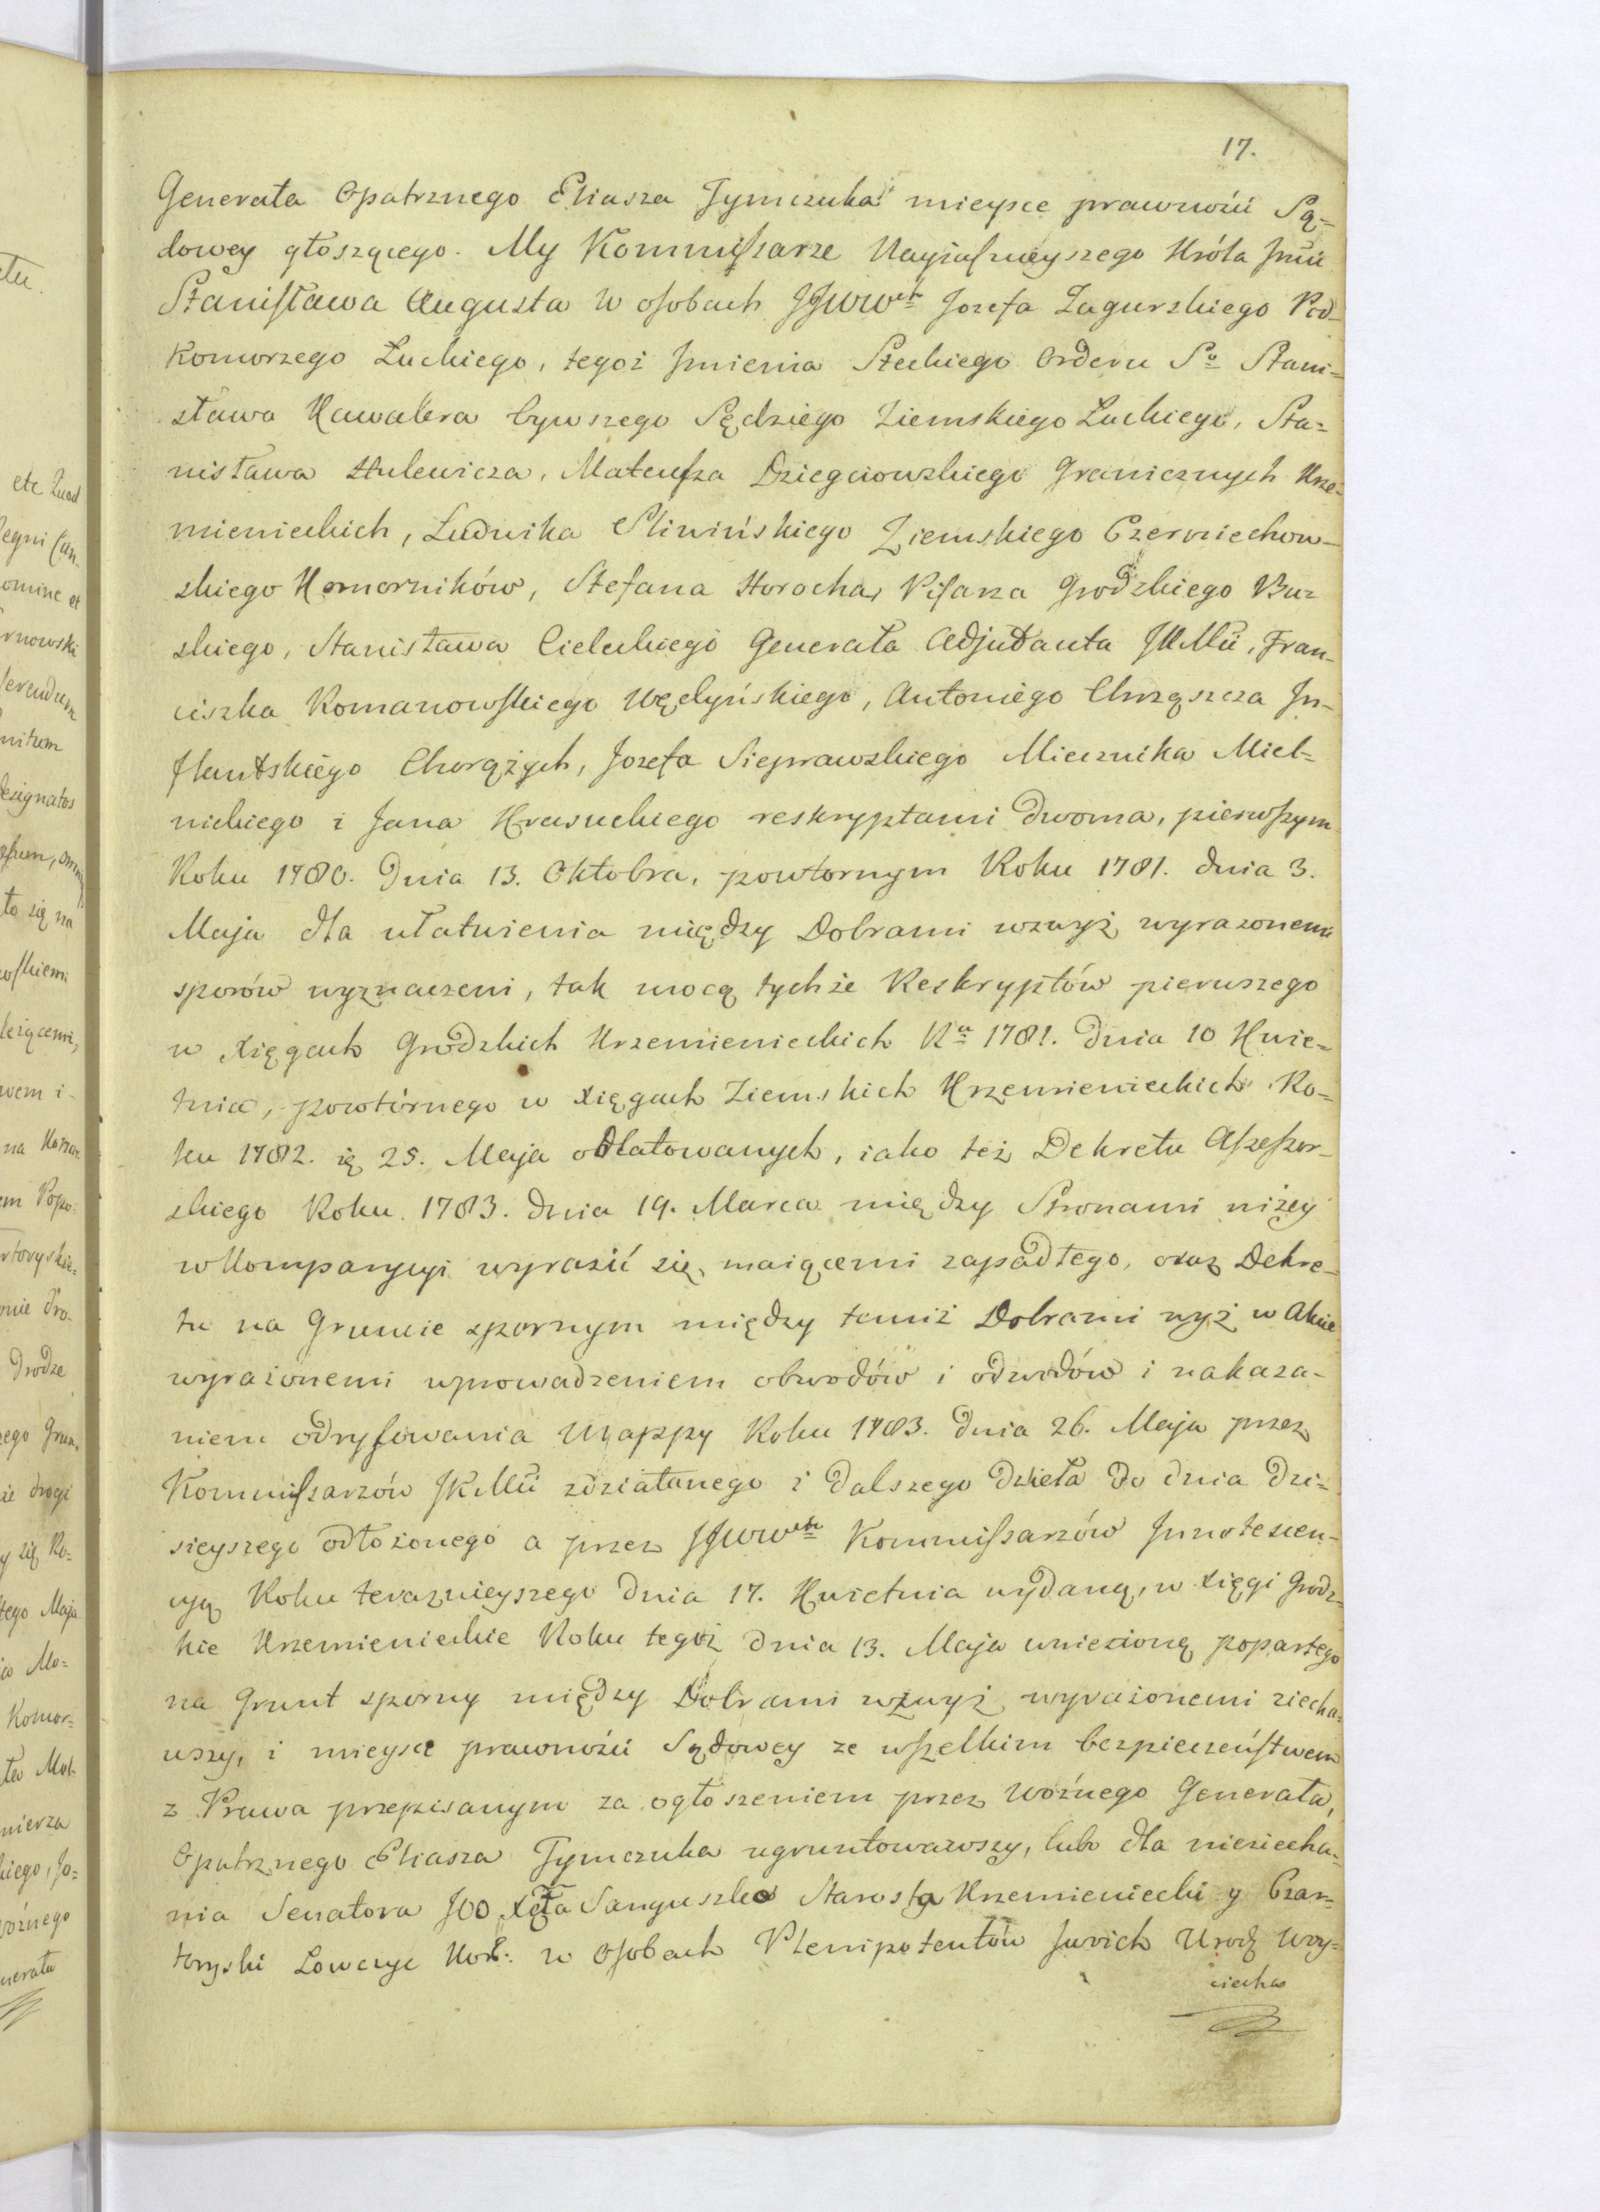 17.
Generała Opatrznego Eliasza Tymczuka mieysce prawności Są-
dowey głoszącego. My Kommissarze Nayjaśnieyszego Króla Jmci
Stanisława Augusta w osobach JJWWch Jozefa Zagurskiego Pod-
komorzego Łuckiego, tegoż Jmienia Steckiego Orderu So Stani-
sława Kawalera bywszego Sędziego Ziemskiego Łuckiego, Sta-
nisława Hulewicza, Mateusza Dziegciowskiego Granicznych Krze-
mienieckich, Ludwika Sliwińskiego Ziemskiego Czerniechow-
skiego Komorników, Stefana Horocha Pisarza Grodzkiego Bu-
skiego, Stanisława Cieleckiego Generała Adjutanta JKMci, Fran-
ciszka Romanowskiego Węclyńskiego, Antoniego Chrząszcza In-
flantskiego Chorążych, Jozefa Sieprawskiego Miecznika Miel-
nickiego i Jana Krasuckiego reskryptami dwoma, pierwszym
Roku 1780. Dnia 13. Oktobra, powtornym Roku 1781. dnia 3.
Maja dla ułatwienia między Dobrami wzwyż wyrazonemi
sporów wyznaczeni, tak mocą tychże Reskryptów pierwszego
w xięgach Grodzkich Krzemienieckich Ru 1781. Dnia 10 Kwie-
tnia, powtórnego w xięgach Ziemskich Krzemienieckich Ro-
ku 1782. 25. Maja oblatowanych, iako też Dekretu Assessor-
skiego Roku 1783. dnia 19. Marca między Stronami niżey
w Kompanycyi wyrazić się maiącemi zapadłego, oraz Dekre-
tu na Gruncie spornym między temiż Dobrami wyż w Akcie
wyrażonemi wprowadzeniem obwodów i odwodów i nakaza-
niem odryfowania Mappy Roku 1783. dnia 26. Maja przez
Kommissarzów JKMci zdziałanego i dalszego dzieła do dnia dzi-
sieyszego odłożonego a przez JJWWch Kommissarzów Innotescen-
cyą Roku teraznieyszego dnia 17. Kwietnia wydaną, w xięgi Grodz-
kie Krzemienieckie Roku tegoż dnia 13. Maja wniesioną popartego
na Grunt sporny między Dobrami wzwyż wyrażonemi ziecha-
wszy, i mieysce prawności Sądowey ze wszelkim bezpieczeństwem
z Prawa przepisanym za ogłoszeniem przez Woźnego Generała,
Opatrznego Eliasza Tymczuka ugruntowawszy, lubo dla nieziecha-
nia Senatora JOO Xcta Sanguszko Starosta Krzemieniecki y Czar-
toryski Łowczyc Kor: w Osobach Plenipotentów Swoich Urodz Woy-
ciecha